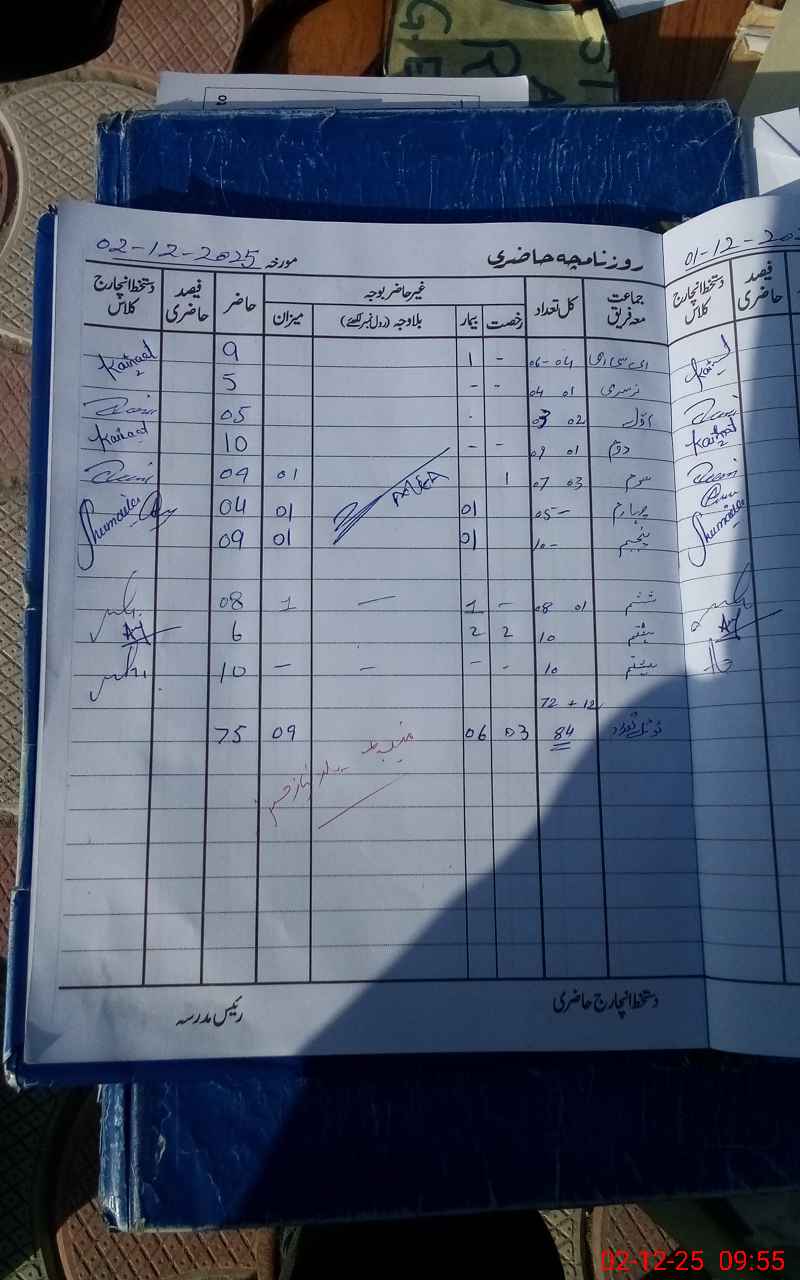 روزنامچہ حاضری
مورخہ 02-12-2025
جماعت معہ فریق | کل تعداد | غیر حاضر بوجہ | رخصت | بیمار | بلاوجہ (رول نمبر لکھئے) | میزان | حاضر | فیصد حاضری | دستخط انچارج کلاس
ای سی ای 04 - 06 - 1 9 Kainaat
نرسری 01 04 - - 5
اوّل 02 03 . 05
دوم 01 09 - - 10 Kainaat
سوم 03 07 1 01 09
چہارم 05 - 01 01 04 Shumaila
پنجم 10 - 01 01 09
ششم 01 08 - 1 — 1 08
ہفتم 10 2 2 6
ہشتم 10 - - – – 10
72 + 12
ٹوٹل تعداد 84 03 06 09 75
دستخط انچارج حاضری
رئیس مدرسہ
01-12-202
فیصد حاضری
دستخط انچارج کلاس
Kainaat
Shumaila
02-12-25 09:55